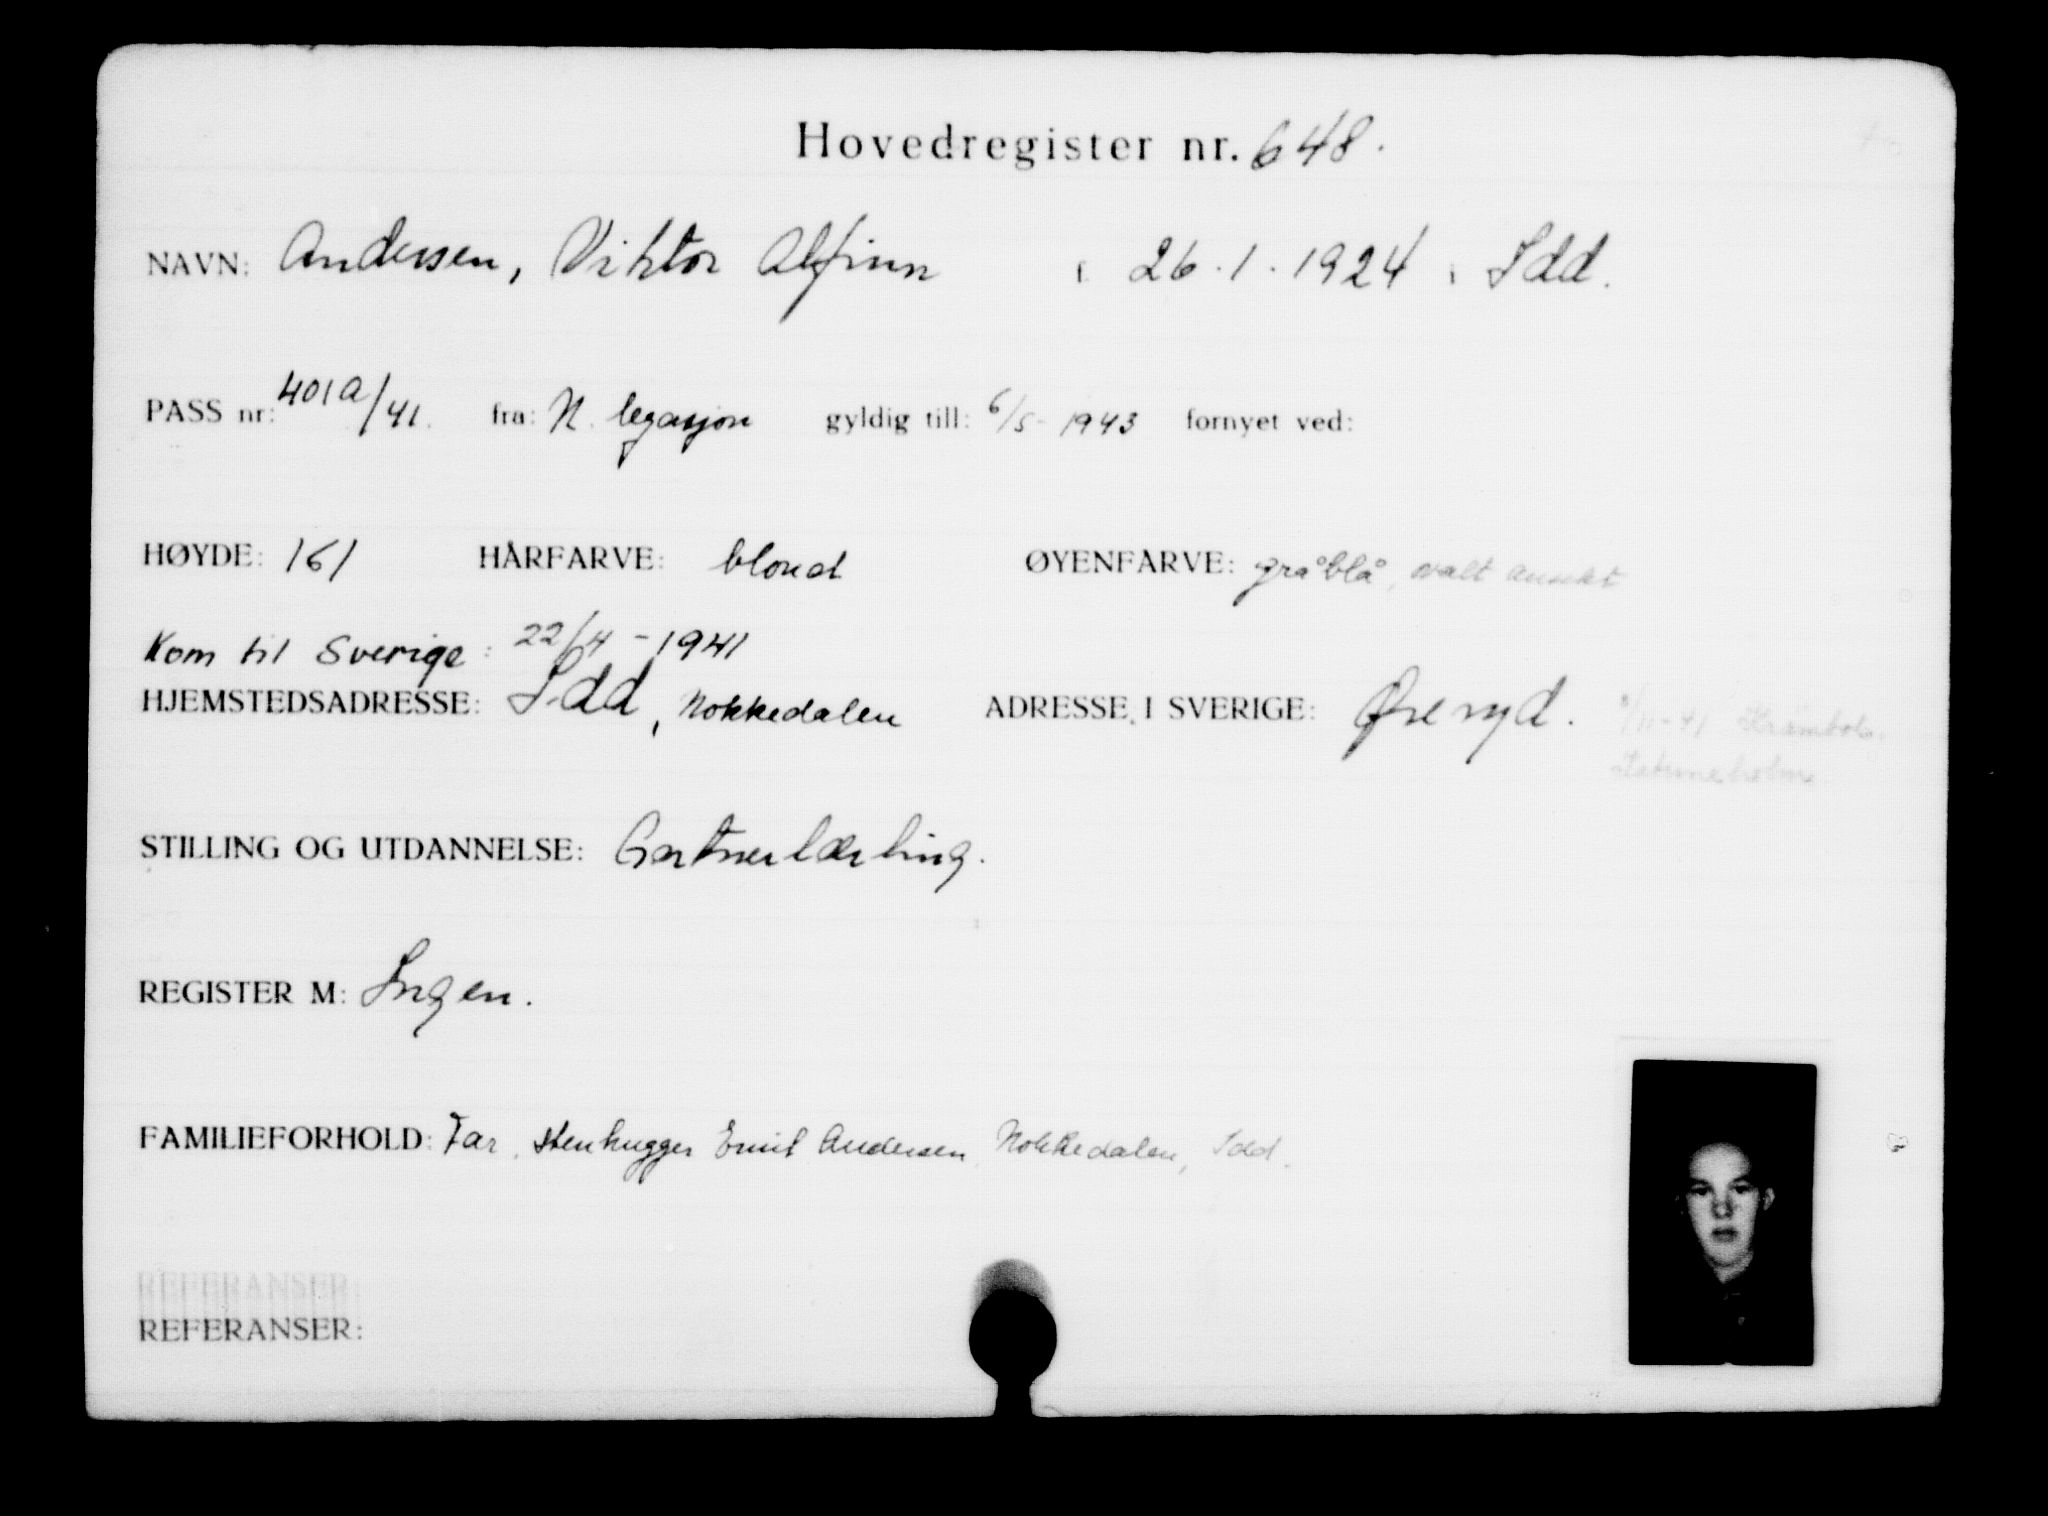 Hovedregister nr. 648.
NAVN: Andersen, Viktor Alfinn f. 26.1.1924 i Idd.
PASS nr: 401a/41. fra: N. legasjon gyldig till: 6/5-1943 fornyet ved:
HØYDE: 161 HÅRFARVE: blond ØYENFARVE: gråblå, ovalt ansikt
Kom til Sverige: 22/4-1941
HJEMSTEDSADRESSE: Idd, Nokkedalen ADRESSE I SVERIGE: Øreryd. /11-41
STILLING OG UTDANNELSE: Gartnerlærling.
REGISTER M: Ingen.
FAMILIEFORHOLD: Far, stenhugger Emil Andersen, Nokkedalen, Idd.
REFERANSER
REFERANSER: